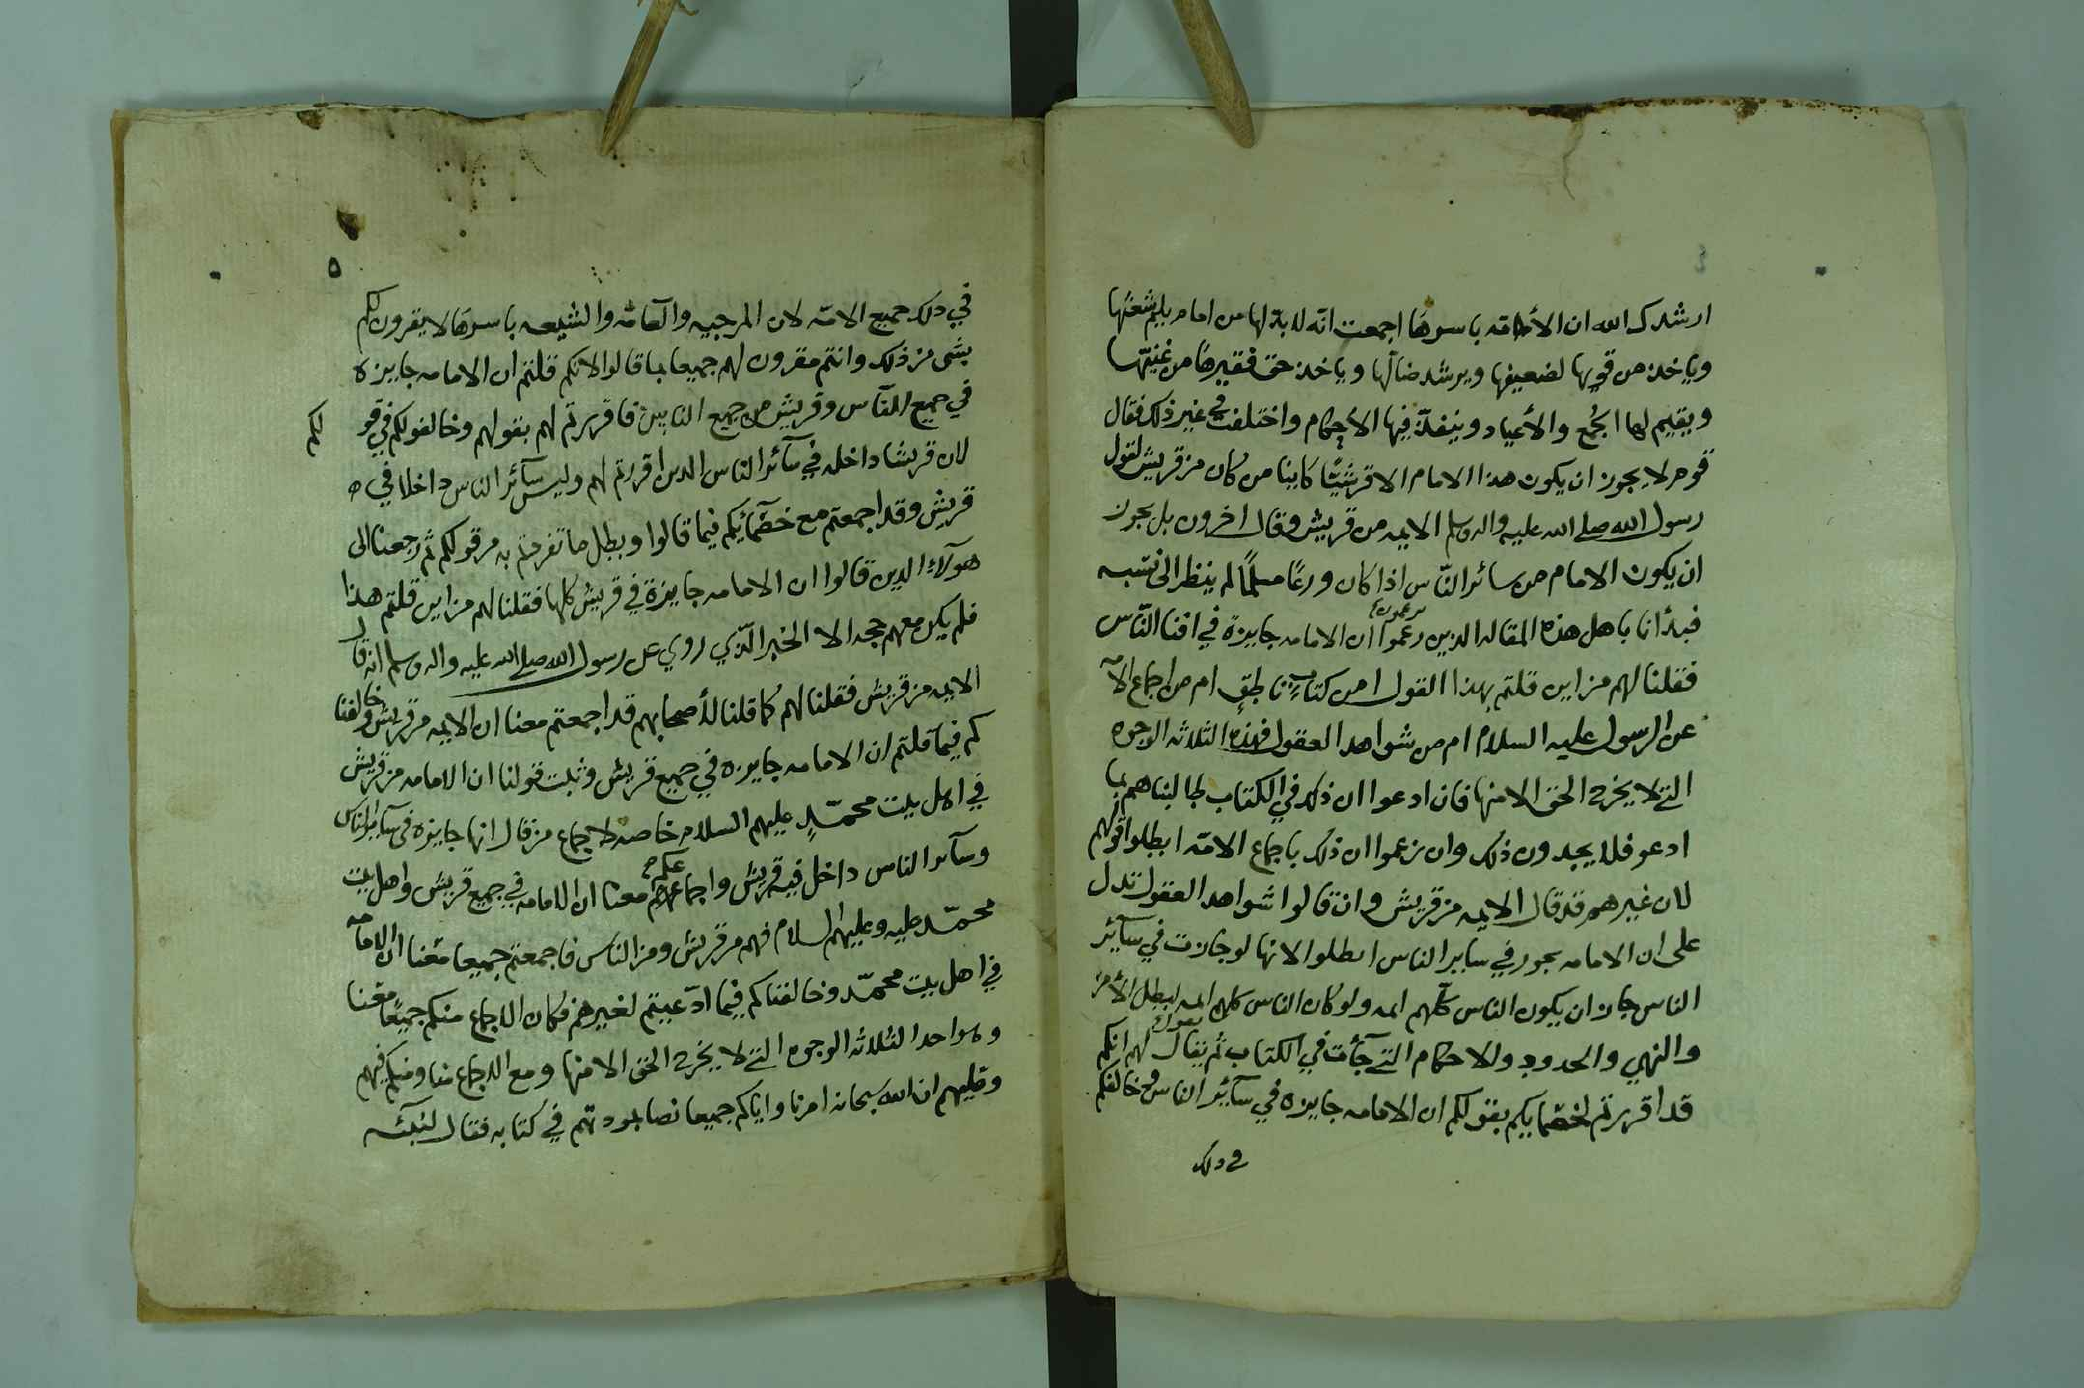 ٤
ارشدك الله ان الأمة باسرها اجمعت انه لا بد لها من امام يلم شعثها
وياخذ من قويها لضعيفها ويرشد ضالها وياخذ حق فقيرها من غنيها
ويقيم لها الجُمع والأعياد وينفذ فيها الأحكام واختلفت في غير ذلك فقال
قوم لا يجوز ان يكون هذا الامام الا قرشيّا كاينا من كان من قريش لقول
رسول الله صلى الله عليه واله وسلم الايمه من قريش وقال اخرون بل يجوز
ان يكون الامام من سائر النّاس اذا كان ورعًا مسلمًا لم ينظر الى نسبه
فبدانا باهل هذه المقاله الذين زعموا ان الامامه جايزة في افنا النّاس
فقلنا لهم من اين قلتم بهذا القول امن كتاب ناطق ام من اجماع الامه
عن الرسول عليه السلام ام من شواهد العقول فهذه الثلاثه الوجوه
التي لا يخرج الحق الا منها فان ادعوا ان ذلك في الكتاب طالبناهم بما
ادعو فلا يجدون ذلك وان زعموا ان ذلك باجماع الامّه ابطلوا قولهم
لان غيرهم قد قال الايمه من قريش وان قالوا شواهد العقول تدل
على ان الامامه يجوز في ساير الناس ابطلوا لانها لو جازت في سآئر
الناس جاز ان يكون الناس كلهم ايمه ولو كان الناس كلهم ايمه لبطل الأمر
والنهي والحدود والاحكام التي جآءت في الكتاب ثم يقال لهم انكم
قد اقررتم لخصمايكم بقولكم ان الامامه جايزه في سآئر الناس وخالفكم
في ذلك
٥
في ذلك جميع الامّه لان المرجيه والعامّه والشيعه باسرها لا يقرون لكم
بشى من ذلك وانتم مقرون لهم جميعا بما قالوا لانكم قلتم ان الامامه جايزه
في جميع النّاس وقريش من جميع الناس فاقررتم لهم بقولهم وخالفوكم في قو
لكم
لان قريشا داخله في سآئر الناس الذين اقررتم لهم وليس سآئر الناس داخلا في
قريش وقد اجمعتم مع خصمآئكم فيما قالوا وبطل ما تفردتم به من قولكم ثم رجعنا الى
هولآء الذين قالوا ان الامامه جايزة في قريش كلها فقلنا لهم من اين قلتم هذا
فلم يكن معهم حجه الا الخبر الّذي روي عن رسول الله صلى الله عليه واله وسلم انه قال
الايمه من قريش فقلنا لهم كما قلنا لأصحابهم قد اجمعتم معنا ان الايمه من قريش وخالفنا
كم فيما قلتم ان الامامه جايزه في جميع قريش وثبت قولنا ان الامامه من قريش
في اهل بيت محمّدٍ عليهم السلام خاصه لاجماع من قال انها جايزه في سآئر الناس
وسآئر الناس داخل فيه قريش واجماعكم معنا ان الامامه في جميع قريش واهل بيت
محمّد عليه وعليهم السلام فهم من قريش ومن الناس فاجمعتم جميعا معنا ان الامامه
في اهل بيت محمّد وخالفناكم فيما ادّعيتم لغيرهم فكان الاجماع منكم جميعًا معنا
وهو احد الثلاثه الوجوه التي لا يخرج الحق الا منها ومع الاجماع منا ومنكم فيهم
وعليهم ان الله سبحانه امرنا واياكم جميعا نصا بمودتهم في كتابه فقال لنبيّه